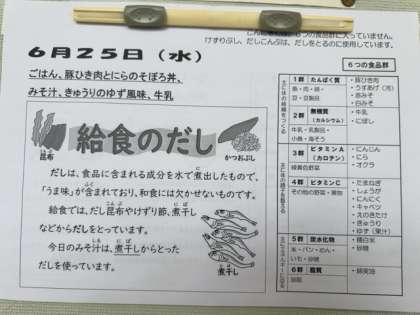 ６つの食品群に入っていません。
けずりぶし、だしこんぶは、だしをとるのに使用しています。
６月２５日（水）
ごはん、豚ひき肉とにらのそぼろ丼、
みそ汁、きゅうりのゆず風味、牛乳
給食のだし
昆布
こんぶ
かつおぶし
だしは、食品に含まれる成分を水で煮出したもので、
「うま味」が含まれており、和食には欠かせないものです。
給食では、だし昆布やけずり節、煮干し
などからだしをとっています。
今日のみそ汁は、煮干しからとった
だしを使っています。
煮干し
６つの食品群
主に体の組織をつくる
１群 たんぱく質
魚・肉・卵・
豆・豆製品
・豚ひき肉
・うすあげ（冷）
・赤みそ
・白みそ
２群 無機質
（カルシウム）
牛乳・乳製品・
小魚・海そう
・牛乳
・にぼし
主に体の調子を整える
３群 ビタミンＡ
（カロチン）
緑黄色野菜
・にんじん
・にら
・オクラ
４群 ビタミンＣ
その他の野菜・果物
・たまねぎ
・しょうが
・にんにく
・キャベツ
・えのきたけ
・きゅうり
・ゆず（果汁）
５群 炭水化物
米・パン・めん・
いも・砂糖
・精白米
・砂糖
６群 脂質
・綿実油